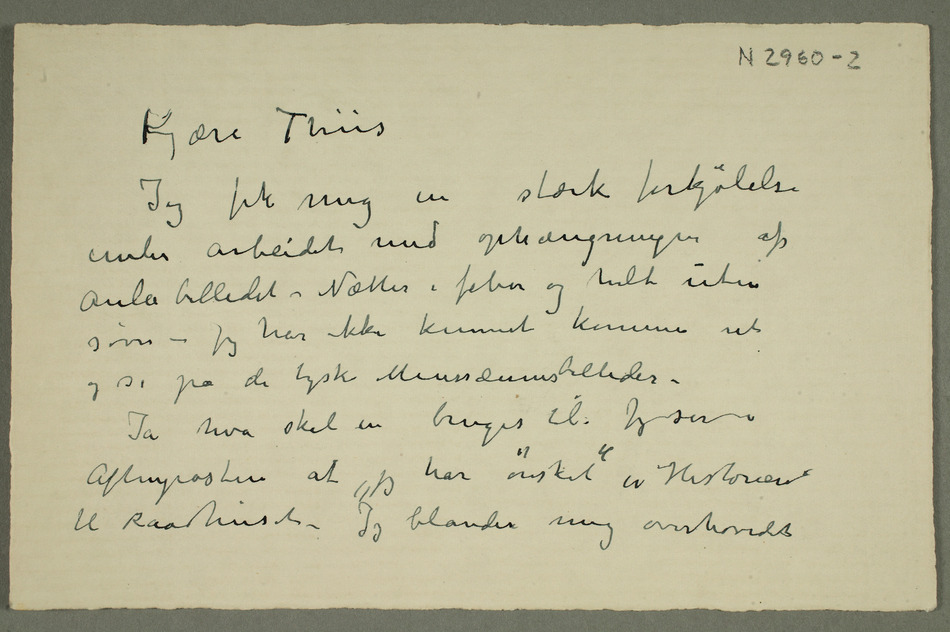 N 2960-2
Kjære Thiis
Jeg fik mig en stærk forkjölelse
under arbeidet med ophængningen af
Aulabilledet – Nætter i feber og helt uten
søvn – Jeg har ikke kunnet komme ut
og se på de tyske Musæumsbilleder –
Ja hva skal en bruges til. Jeg ser i
Aftenposten at „jeg har "önsket" „Historien"
til Raadhuset – Jeg blander mig overhovedet